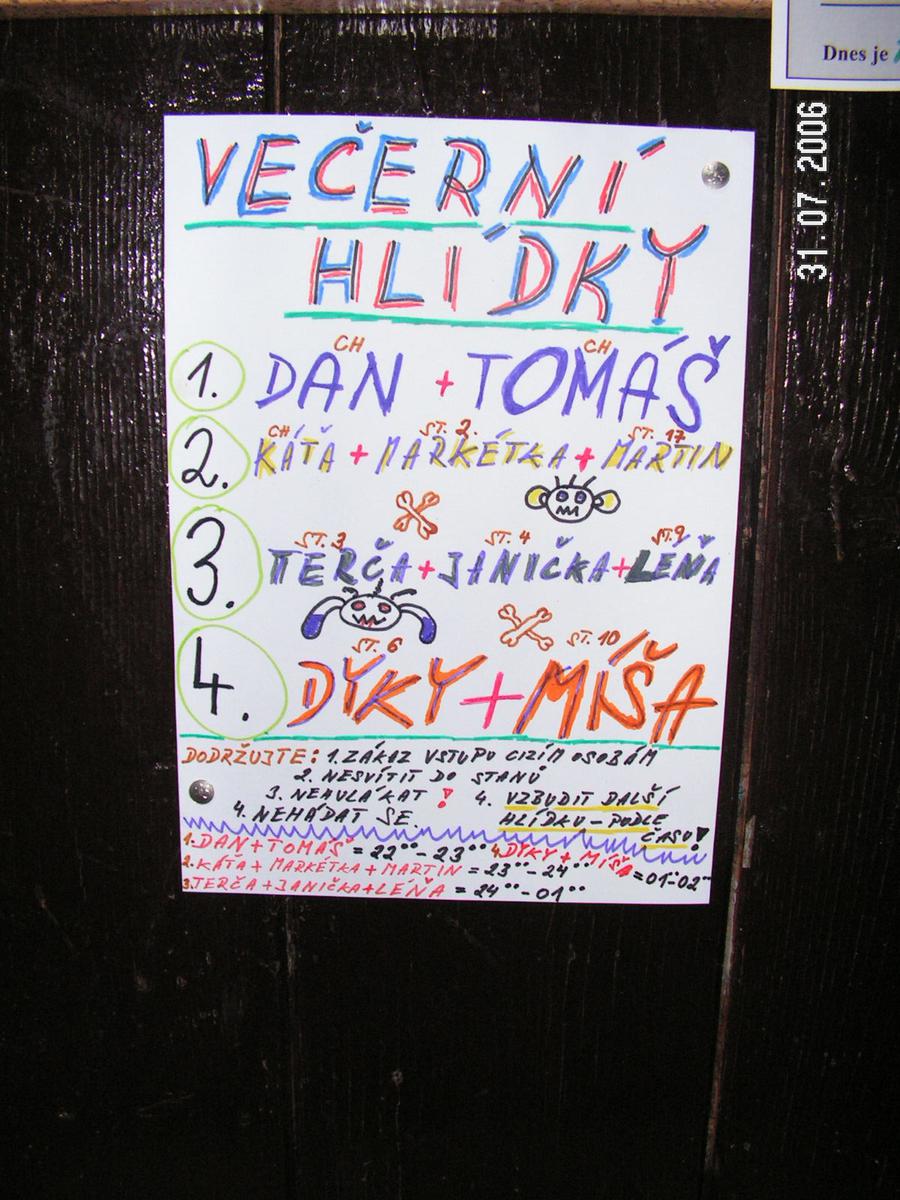 Dnes je
31.07.2006
VEČERNÍ
HLÍDKY
CH CH
1. DAN + TOMÁŠ
CH ST. 2. ST. 17
2. KÁŤA + MARKÉTKA + MARTIN
ST. 3 ST. 4 ST. 9
3. TERČA + JANIČKA + LÉŇA
ST. 6 ST. 10
4. DYKY + MÍŠA
DODRŽUJTE: 1. ZÁKAZ VSTUPU CIZÍM OSOBÁM
2. NESVÍTIT DO STANŮ
3. NEHULÁKAT ! 4. VZBUDIT DALŠÍ
4. NEHÁDAT SE. HLÍDKU - PODLE
ČASU!
1. DAN + TOMÁŠ = 22°° - 23°° 4. DYKY + MÍŠA = 01°° - 02°°
2. KÁŤA + MARKÉTKA + MARTIN = 23°° - 24°°
3. TERČA + JANIČKA + LÉŇA = 24°° - 01°°